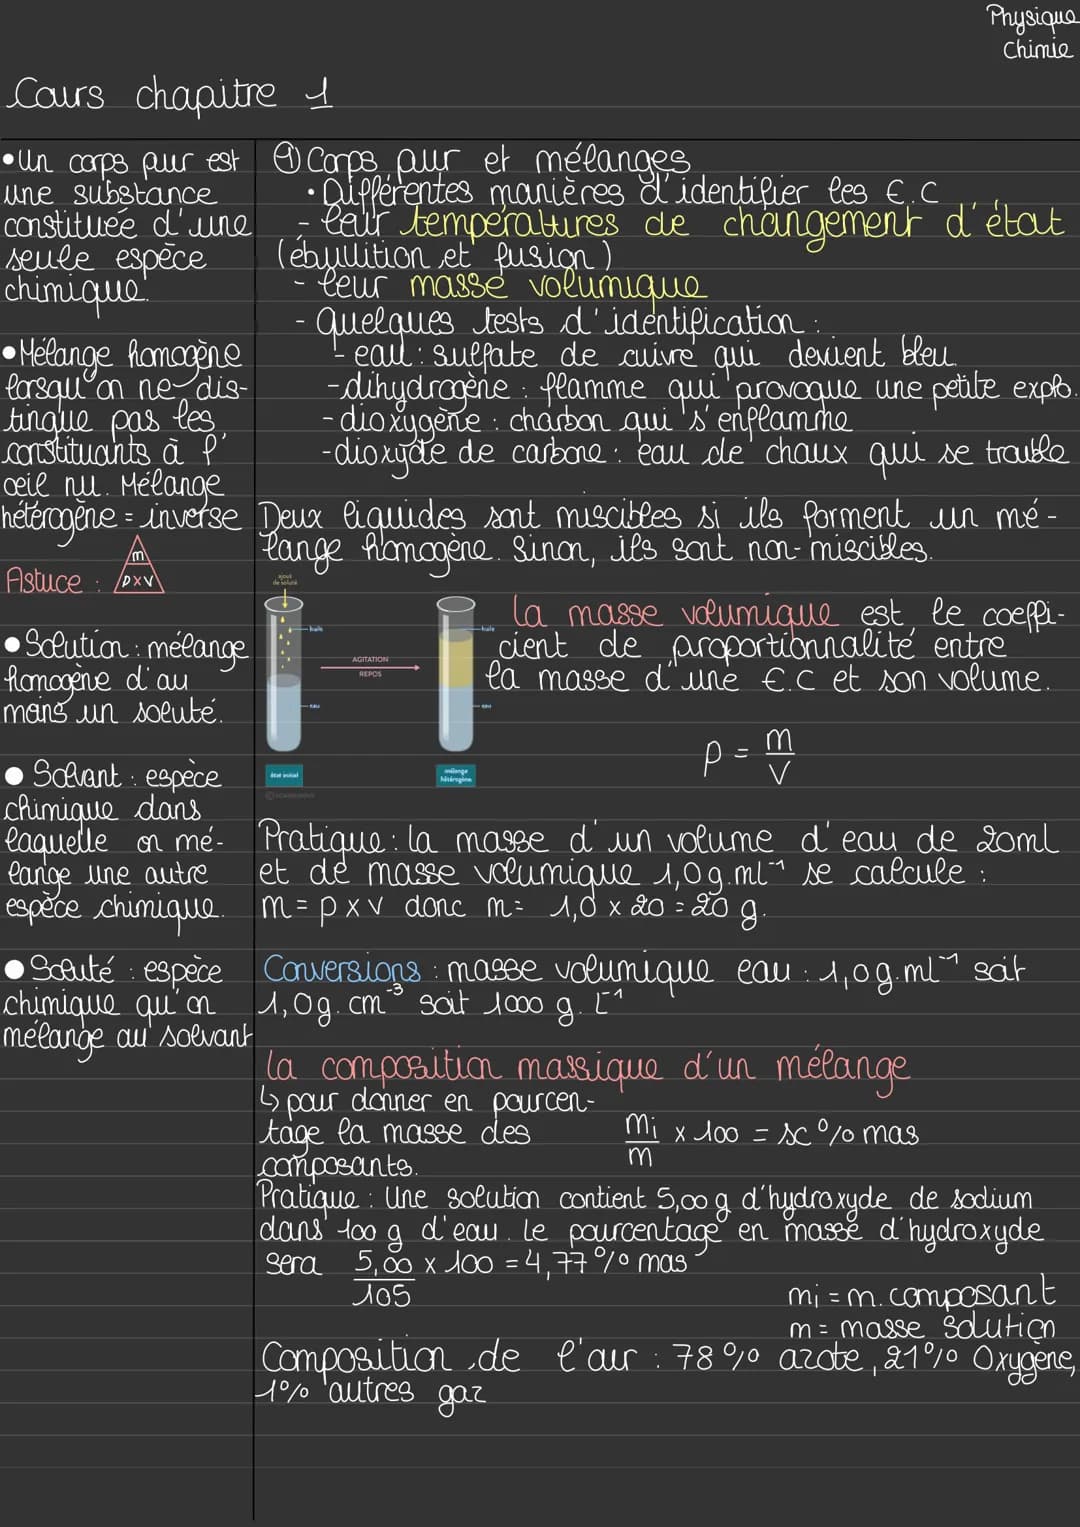 Physique
Chimie
Cours chapitre 1
• Un corps pur est
une substance
constituée d'une
seule espèce
chimique.
• Mélange homogène
lorsqu'on ne dis-
tingue pas les
constituants à l'
œil nu. Mélange
hétérogène = inverse
Astuce : m
ρ x v
• Solution : mélange
homogène d'au
moins un soluté.
• Solvant : espèce
chimique dans
laquelle on mé-
lange une autre
espèce chimique.
• Soluté : espèce
chimique qu'on
mélange au solvant
① Corps pur et mélanges
• Différentes manières d'identifier les E.C
- leur températures de changement d'état
(ébullition et fusion)
- leur masse volumique
- Quelques tests d'identification :
- eau : sulfate de cuivre qui devient bleu.
- dihydrogène : flamme qui provoque une petite explo.
- dioxygène : charbon qui s'enflamme
- dioxyde de carbone : eau de chaux qui se trouble
Deux liquides sont miscibles si ils forment un mé-
lange homogène. Sinon, ils sont non-miscibles.
ajout
de soluté
huile
eau
état initial
AGITATION
REPOS
huile
eau
mélange
hétérogène
La masse volumique est le coeffi-
cient de proportionnalité entre
la masse d'une E.C et son volume.
ρ = m/V
Pratique : la masse d'un volume d'eau de 20ml
et de masse volumique 1,0g.ml⁻¹ se calcule :
m = ρ x v donc m = 1,0 x 20 = 20 g.
Conversions : masse volumique eau : 1,0g.ml⁻¹ soit
1,0g.cm⁻³ soit 1000 g.L⁻¹
La composition massique d'un mélange
↳ pour donner en pourcen-
tage la masse des
composants.
mi/m x 100 = x % mas
Pratique : Une solution contient 5,00 g d'hydroxyde de sodium
dans 100 g d'eau. Le pourcentage en masse d'hydroxyde
sera 5,00/105 x 100 = 4,77 % mas
mi = m. composant
m = masse solution
Composition de l'air : 78 % azote, 21% Oxygène,
1% autres gaz